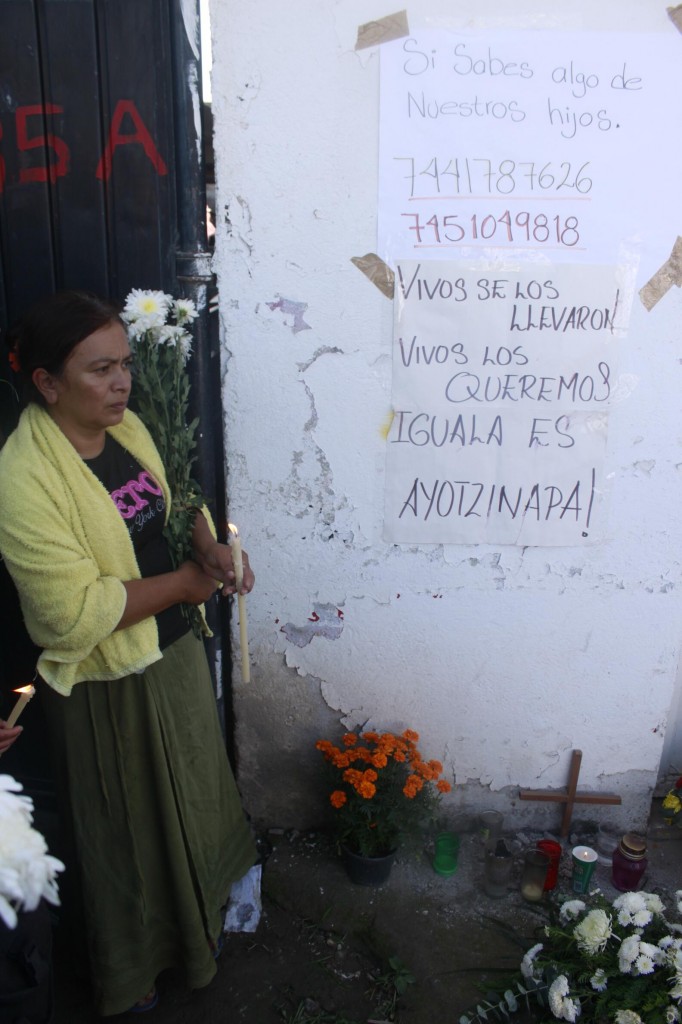 Si Sabes algo de
Nuestros hijos.
7441787626
7451049818
Vivos se los
llevaron!
Vivos los
queremos
Iguala es
Ayotzinapa!
35 A